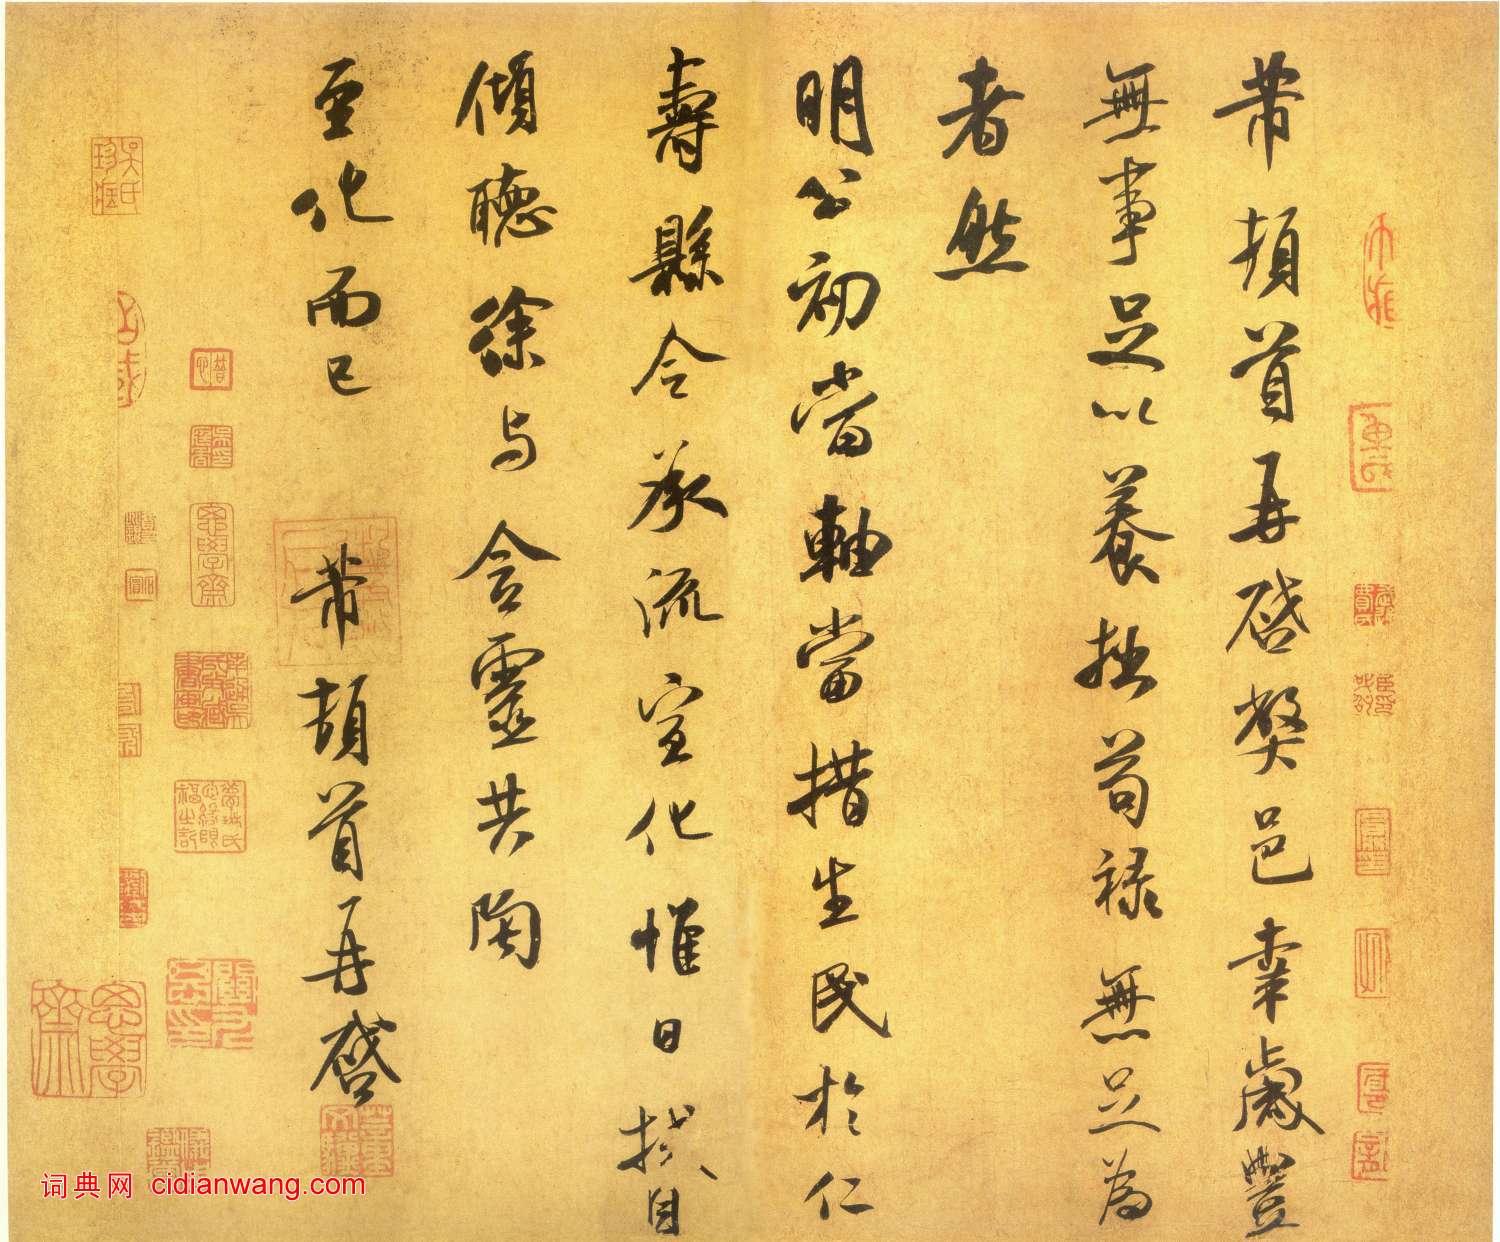 芾頓首再啓弊邑幸歲豐
無事足以養拙苟禄無足為
者然
明公初當軸當措生民於仁
壽縣令承流宣化惟日拭目
傾聽徐与含靈共陶
至化而已 芾頓首再啓
词典网 cidianwang.com